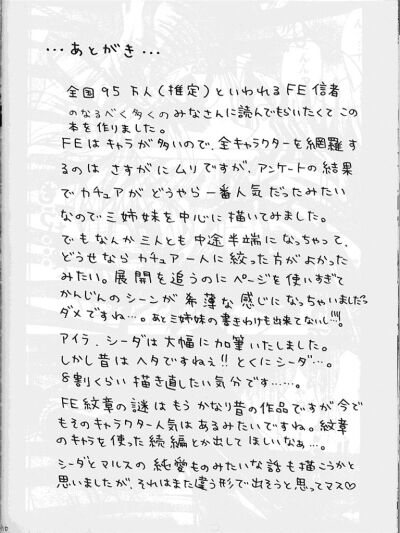 …あとがき…
全国95万人(推定)といわれるFE信者
のなるべく多くのみなさんに読んでもらいたくてこの
本を作りました。
FEはキャラが多いので、全キャラクターを網羅す
るのはさすがにムリですが、アンケートの結果
でカチュアがどうやら一番人気だったみたい
なので三姉妹を中心に描いてみました。
でもなんか三人とも中途半端になっちゃって、
どうせならカチュア一人に絞った方がよかった
みたい。展開を追うのにページを使いすぎて
かんじんのシーンが希薄な感じになっちゃいましたら
ダメですね…。あと三姉妹の書きわけも出来てないし!!!。
アイラ、シーダは大幅に加筆いたしました。
しかし昔はヘタですねぇ!!とくにシーダ…。
8割くらい描き直したい気分です……。
FE紋章の謎はもうかなり昔の作品ですが今で
もそのキャラクター人気はあるみたいですね。紋章
のキャラを使った続編とか出してほしいなぁ…。
シーダとマルスの純愛ものみたいな話も描こうかと
思いましたが、それはまた違う形で出そうと思ってマス♡